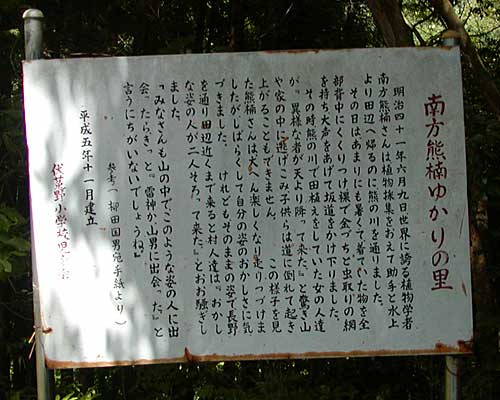 南方熊楠ゆかりの里
明治四十一年六月九日世界に誇る植物学者
南方熊楠さんは植物採集をおえて助手と水上
より田辺へ帰るのに熊の川を通りました。
その日はあまりにも暑くて着ていた物を全
部背中にくくりつけ裸で金づちと虫取りの網
を持ち大声をあげて坂道をかけ下りました。
その時熊の川で田植えをしていた女の人達
が、異様な者が天より降って来た』と驚き山
や家の中に逃げこみ子供らは道に倒れて起き
上がることもできません。この様子を見
た熊楠さんは大へん楽しくなり走りつづけま
したがしばらくして自分の姿のおかしさに気
づきました。けれどもそのままの姿で長野
を通り田辺近くまで来ると村人達は、おかし
な姿の人が二人そろって来た』とおお騒ぎし
ました。
『みなさんも山の中でこのような姿の人に出
会ったらきっと。雷神か山男に出会った!』と
言うにちがいないでしょうね』
参考(柳田国男宛手紙より)
平成五年十一月建立
伏菟野小学校児童会